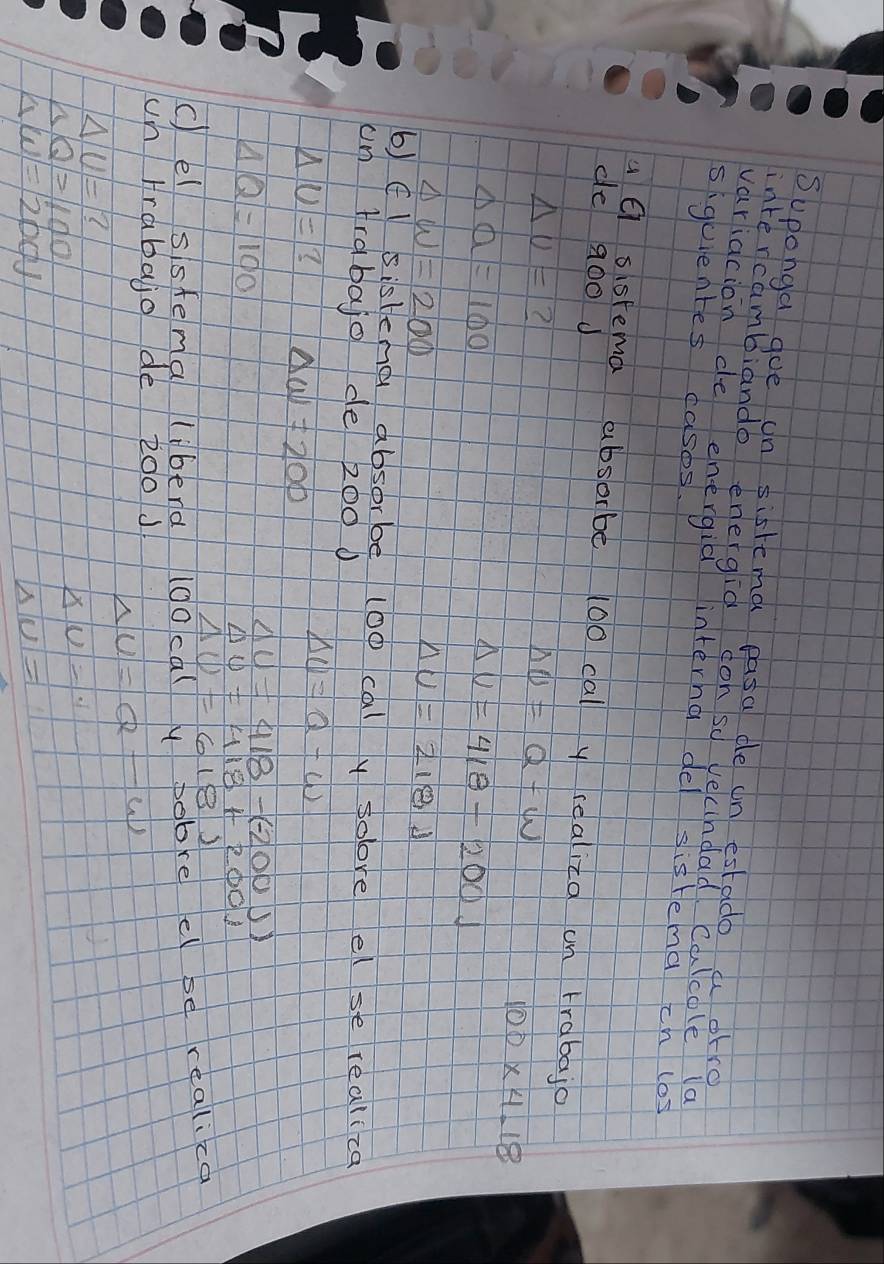 Suponga que un sistema pasa de un estado a otro
intercambiando energia con su vecindad. Calcole la
variacion de energia interna del sistema en los
siguientes casos.
a El sistema absorbe 100 cal y realiza un trabajo
de 200 J
ΔU = ?
ΔU = Q - W
100 x 4.18
ΔQ = 100
ΔU = 418 - 200 J
ΔW = 200
ΔU = 218 J
b) El sistema absorbe 100 cal y sobre el se realiza
un trabajo de 200 J
ΔU = ? ΔW = 200
ΔU = Q - W
ΔQ = 100
ΔU = 418 - (-200 J)
ΔU = 418 + 200 J
ΔU = 618 J
c) el sistema libera 100 cal y sobre el se realiza
un trabajo de 200 J.
ΔU = Q - W
ΔU = ?
ΔU =
ΔQ = 100
ΔU =
ΔW = 200 J